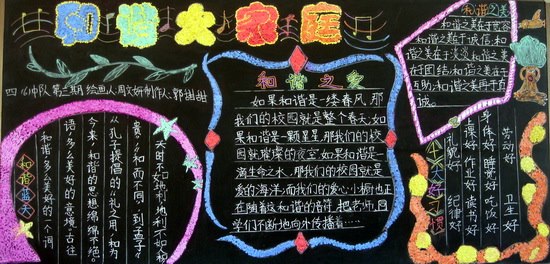 和谐大家庭
四(6)中队 第二期 绘画人:周文妍 制作人:郭甜甜
和谐之美
和谐之美在于宽容
和谐之美在于诚信 和
谐之美在于淡泊 和谐之美
在于团结 和谐之美在于
互助 和谐之美在于真
诚。
和谐之爱
如果和谐是一缕春风,那
我们的校园就是整个春天;如
果和谐是一颗星星,那我们的校
园就是璀璨的夜空;如果和谐是一
滴生命之水,那我们的校园就是
爱的海洋;而我们的爱心小树也正
在随着这和谐的音符,把老师、同
学们不断地向外传播着……
和谐蓝天
和谐,多么美好的一个词
语,多么美好的意境。古往
今来,和谐的思想绵绵不绝。
从孔子提倡的“礼之用,和为
贵”,“和而不同”,到孟子“
天时不如地利,地利不如人和
劳动好
卫生好
身体好 睡觉好 吃饭好
课间好 作业好 读书好
礼貌好
纪律好